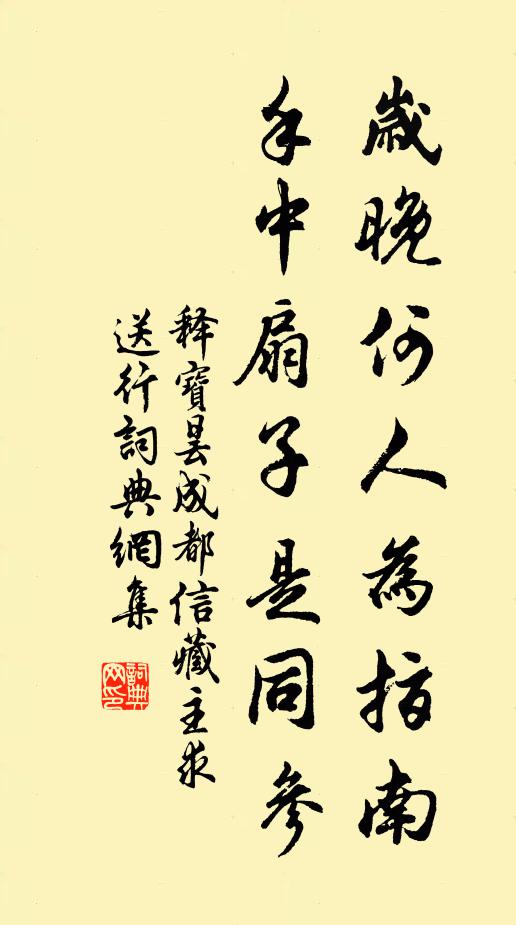 歲晚何人為指南
手中扇子是同參
釋寶曇成都信藏主求
送行詞典網集
詞典網印